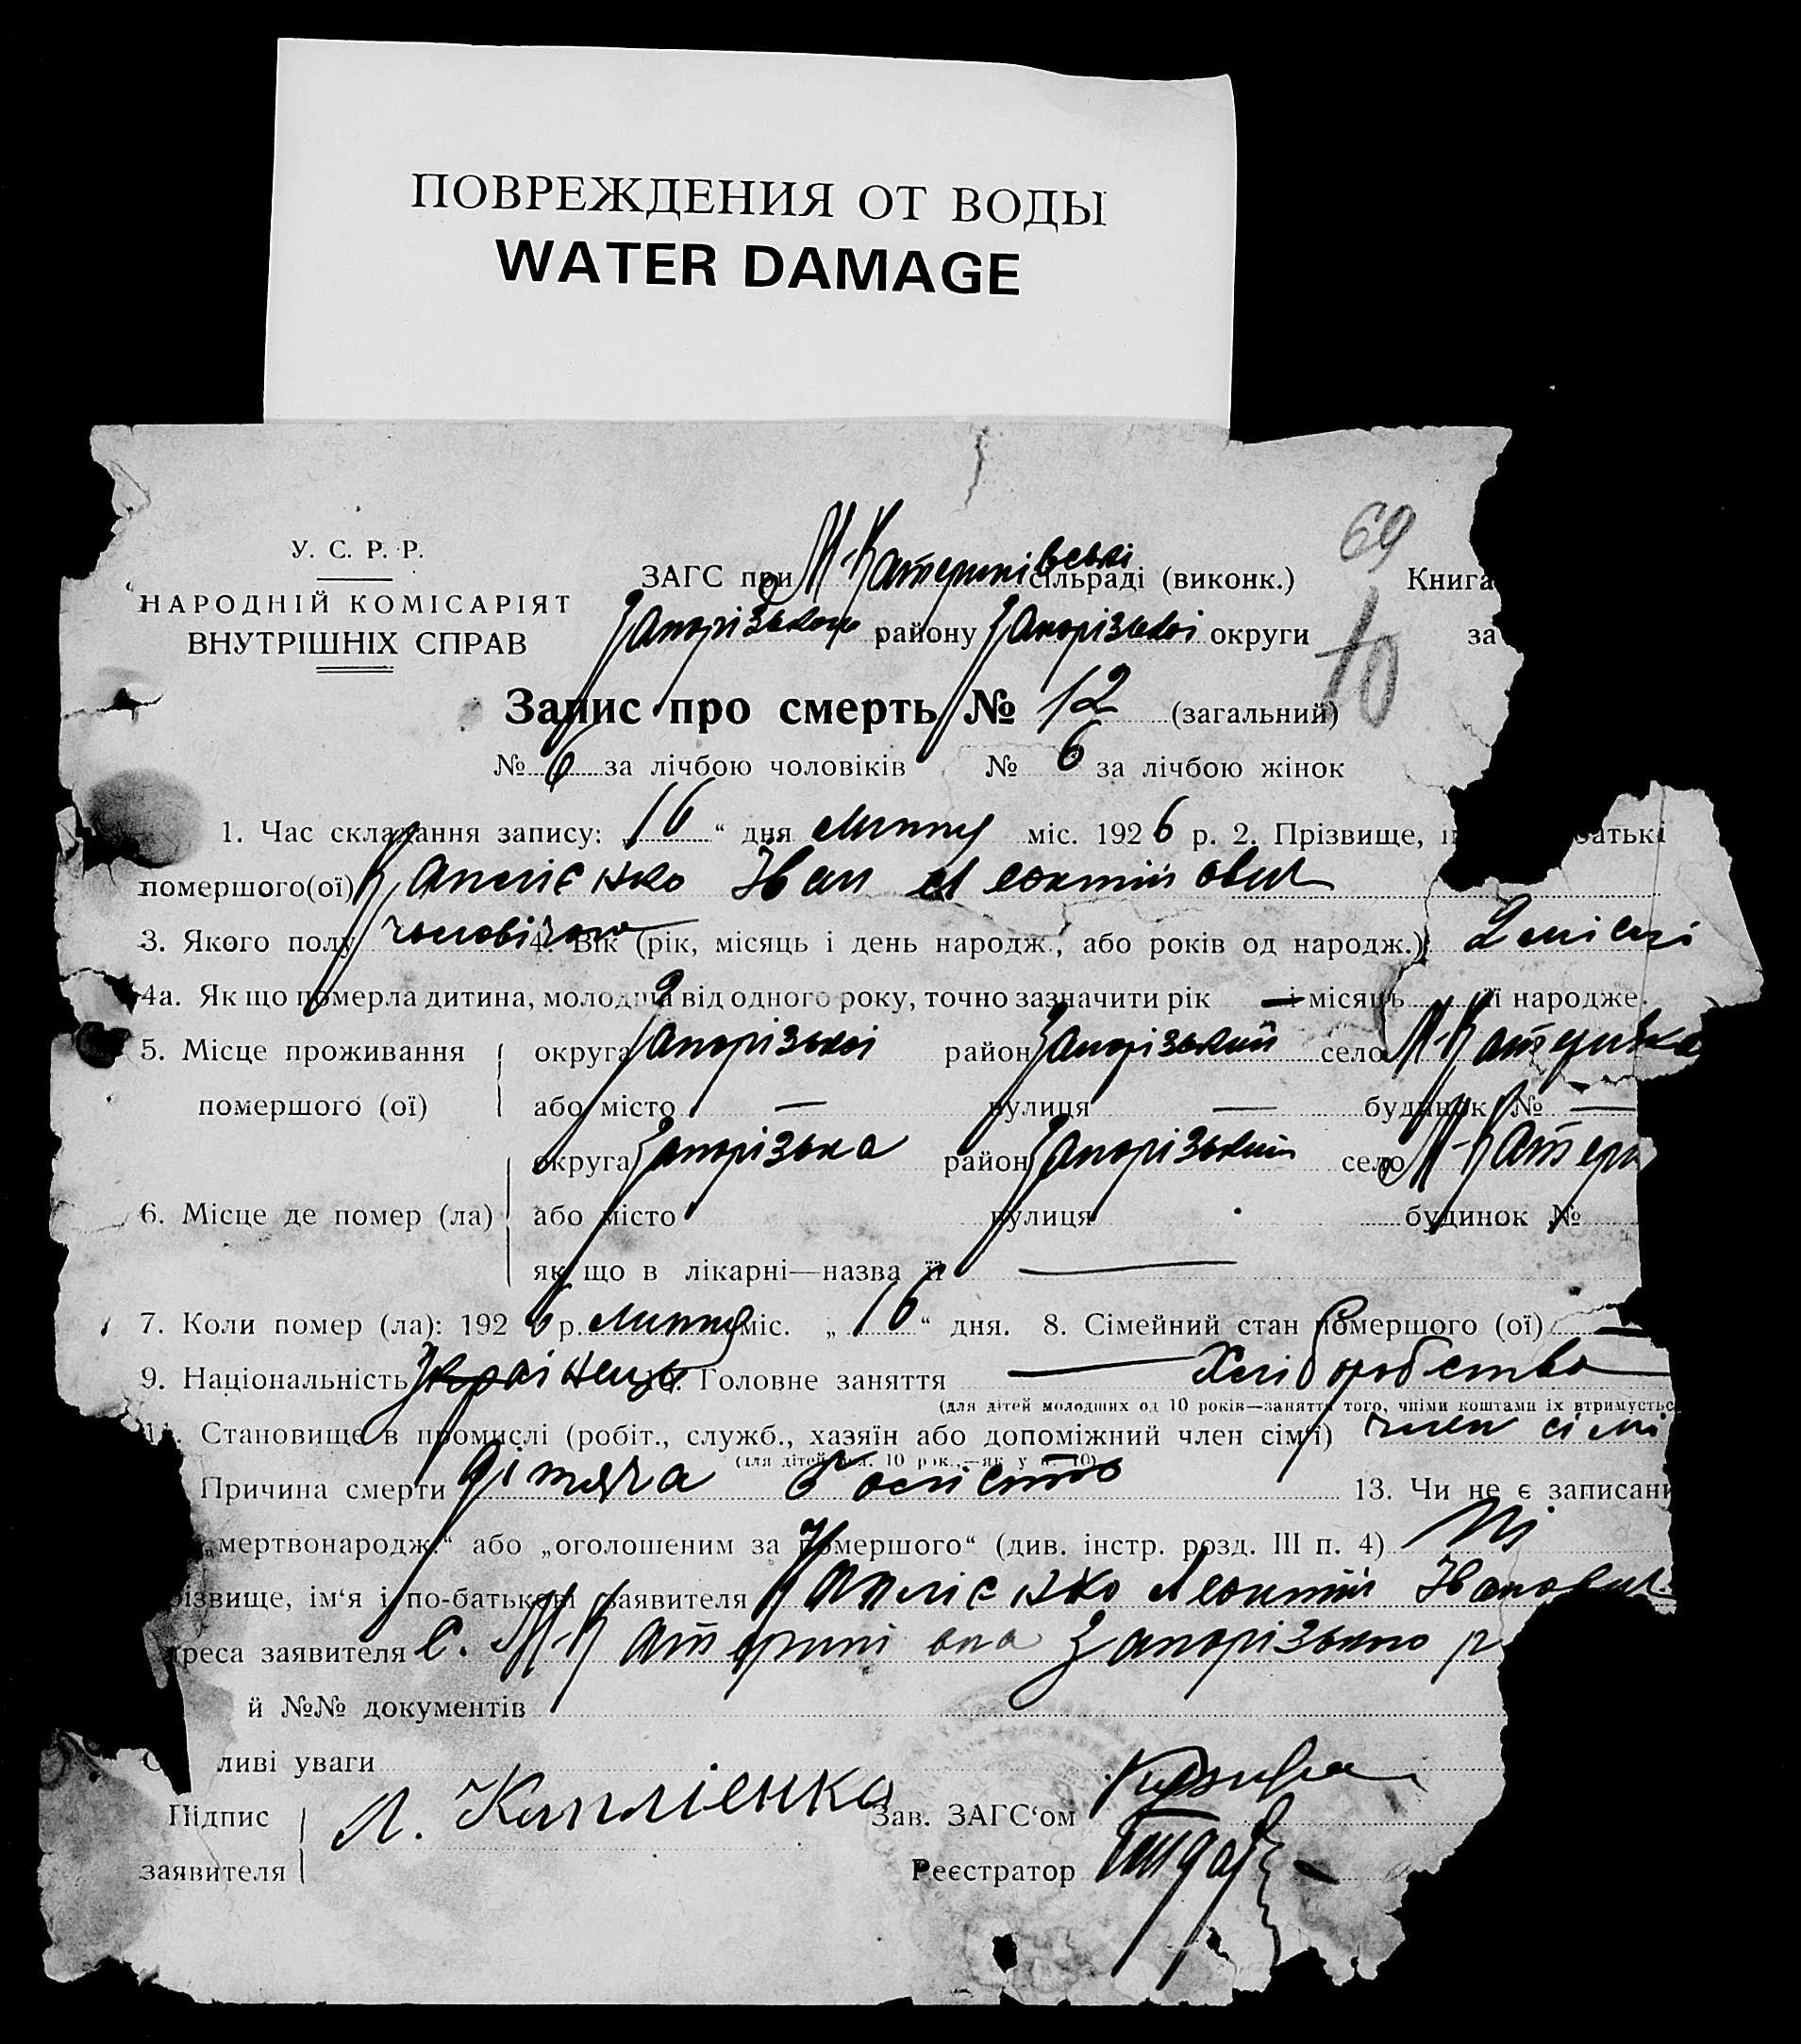 ПОВРЕЖДЕНИЯ ОТ ВОДЫ
WATER DAMAGE
69
У. С. Р. Р.
НАРОДНІЙ КОМІСАРІЯТ
ВНУТРІШНІХ СПРАВ
ЗАГС при М-Катеринівські сільраді (виконк.) Книга
Запорізького району Запорізької округи за
10
Запис про смерть № 12 (загальний)
№ 6 за лічбою чоловіків № 6 за лічбою жінок
1. Час складання запису: 16 “ дня липня міс. 1926 р. 2. Прізвище, батьк
помершого(ої) Каплієнко Іван Леонтійович
3. Якого полу чоловічого 4. Вік (рік, місяць і день народж., або років од народж.) 2 місяці
4а. Як що померла дитина, молодша від одного року, точно зазначити рік — і місяць її народже
5. Місце проживання округа Запорізької район Запорізький село М-Катеринівка
помершого (ої) або місто — вулиця — будинок № —
округа Запорізька район Запорізький село М-Катери
6. Місце де помер (ла) або місто вулиця будинок №
як що в лікарні—назва її —
7. Коли помер (ла): 1926 р. липня міс. „ 16 “ дня. 8. Сімейний стан помершого (ої) —
9. Національність Українець Головне заняття — Хліборобство
(для дітей молодших од 10 років—заняття того, чиїми коштами їх втримуєтьс
11. Становище в промислі (робіт., служб., хазяїн або допоміжний член сім‘ї) член сімі
(для дітей мол. 10 рок.—як у п. 10)
Причина смерти Дітяча болість 13. Чи не є записани
„мертвонародж.“ або „оголошеним за помершого“ (див. інстр. розд. III п. 4) Ні
ізвище, ім‘я і по-батькові заявителя Каплієнко Леонтій Іванович
реса заявителя с. М-Катеринівка Запорізького р
й №№ документів
ливі уваги
Підпис Л. Каплієнко Зав. ЗАГС‘ом
заявителя Реєстратор